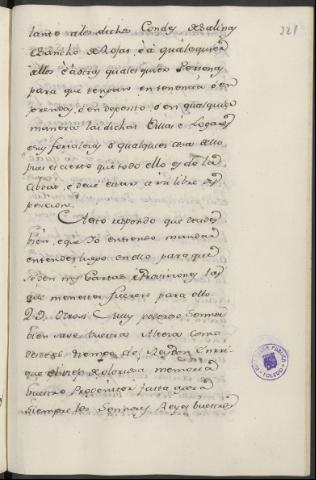 tanto a los dichos Condes de Salinas
e Sancho de Rojas, e á qualesquier
dellos e á otras qualesquier Personas
para que tengan en tenencia ó en
prendas, ó en deposito, ó en qualquier
manera las dichas Villas, é Logares
e sus fortalezas ó qualquier cosa dello
pues es cierto que todo ello es de la
Cibdad, é deve estar á su libre dis
posicion.
A esto respondo que decides
bien, e que Yo entiendo mandar
entender luego en ello, para que
se den mis Cartas é Provisiones las
que menester fueren para ello
Otrosi Muy poderoso Señor
bien save vuestra Alteza como
desde el tiempo del Rey Don Enrri
que el viejo de gloriosa memoria
vuestro Progenitor fasta agora
siempre los Señores Reyes vuestros
221